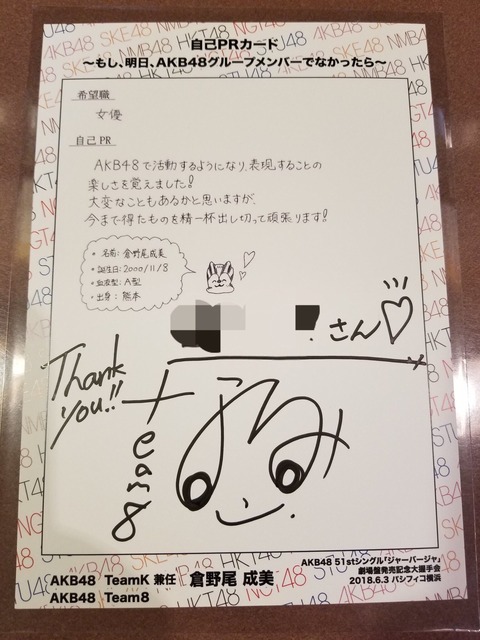 自己PRカード
～もし、明日、AKB48グループメンバーでなかったら～
希望職
女優
自己PR
AKB48で活動するようになり、表現することの
楽しさを覚えました!
大変なこともあるかと思いますが、
今まで得たものを精一杯出し切って頑張ります!!
・名前:倉野尾成美
・誕生日:2000/11/8
・血液型:A型
・出身:熊本
さん♡
Thank
you!!
team8
なるみ
AKB48 TeamK 兼任 倉野尾 成美
AKB48 Team8
AKB48 51stシングル「ジャーバージャ」
劇場盤発売記念大握手会
2018.6.3 パシフィコ横浜